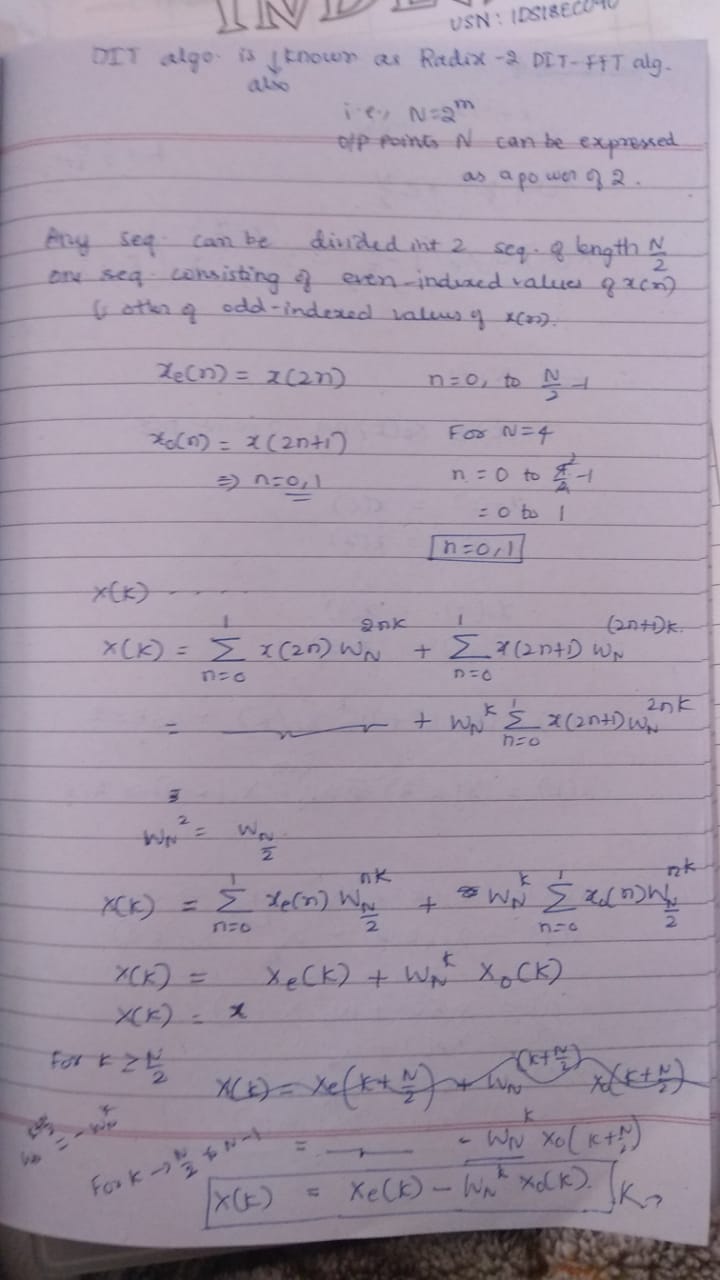 INDE
USN: 1DS18EC040
DIT algo. is known as Radix-2 DIT-FFT alg.
also
i.e., N=2^m
o/p points N can be expressed
as a power of 2.
Any seq. can be divided int 2 seq. of length N/2
one seq consisting of even-indexed values of x(n)
& other of odd-indexed values of x(n).
xe(n) = x(2n) n=0, to N/2 -1
xo(n) = x(2n+1) For N=4
⇒ n=0,1 n = 0 to 4/2 -1
= 0 to 1
n=0,1
X(K) ....
X(K) = Σ_{n=0}^{1} x(2n) W_N^{2nk} + Σ_{n=0}^{1} x(2n+1) W_N^{(2n+1)k}
= + W_N^k Σ_{n=0}^{1} x(2n+1) W_N^{2nk}
W_N^2 = W_{N/2}
X(K) = Σ_{n=0}^{1} xe(n) W_{N/2}^{nk} + W_N^k Σ_{n=0}^{1} xo(n) W_{N/2}^{nk}
X(K) = Xe(K) + W_N^k Xo(K)
X(K) = x
For K ≥ N/2
X(K) = Xe(K+N/2) + W_N^{(K+N/2)} Xo(K+N/2)
= -W_N^k
= - W_N^k Xo(K+N/2)
For K → N/2 to N-1
X(K) = Xe(K) - W_N^k Xo(K). K→